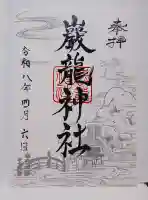 奉拝
巖龍神社
令和八年四月六日